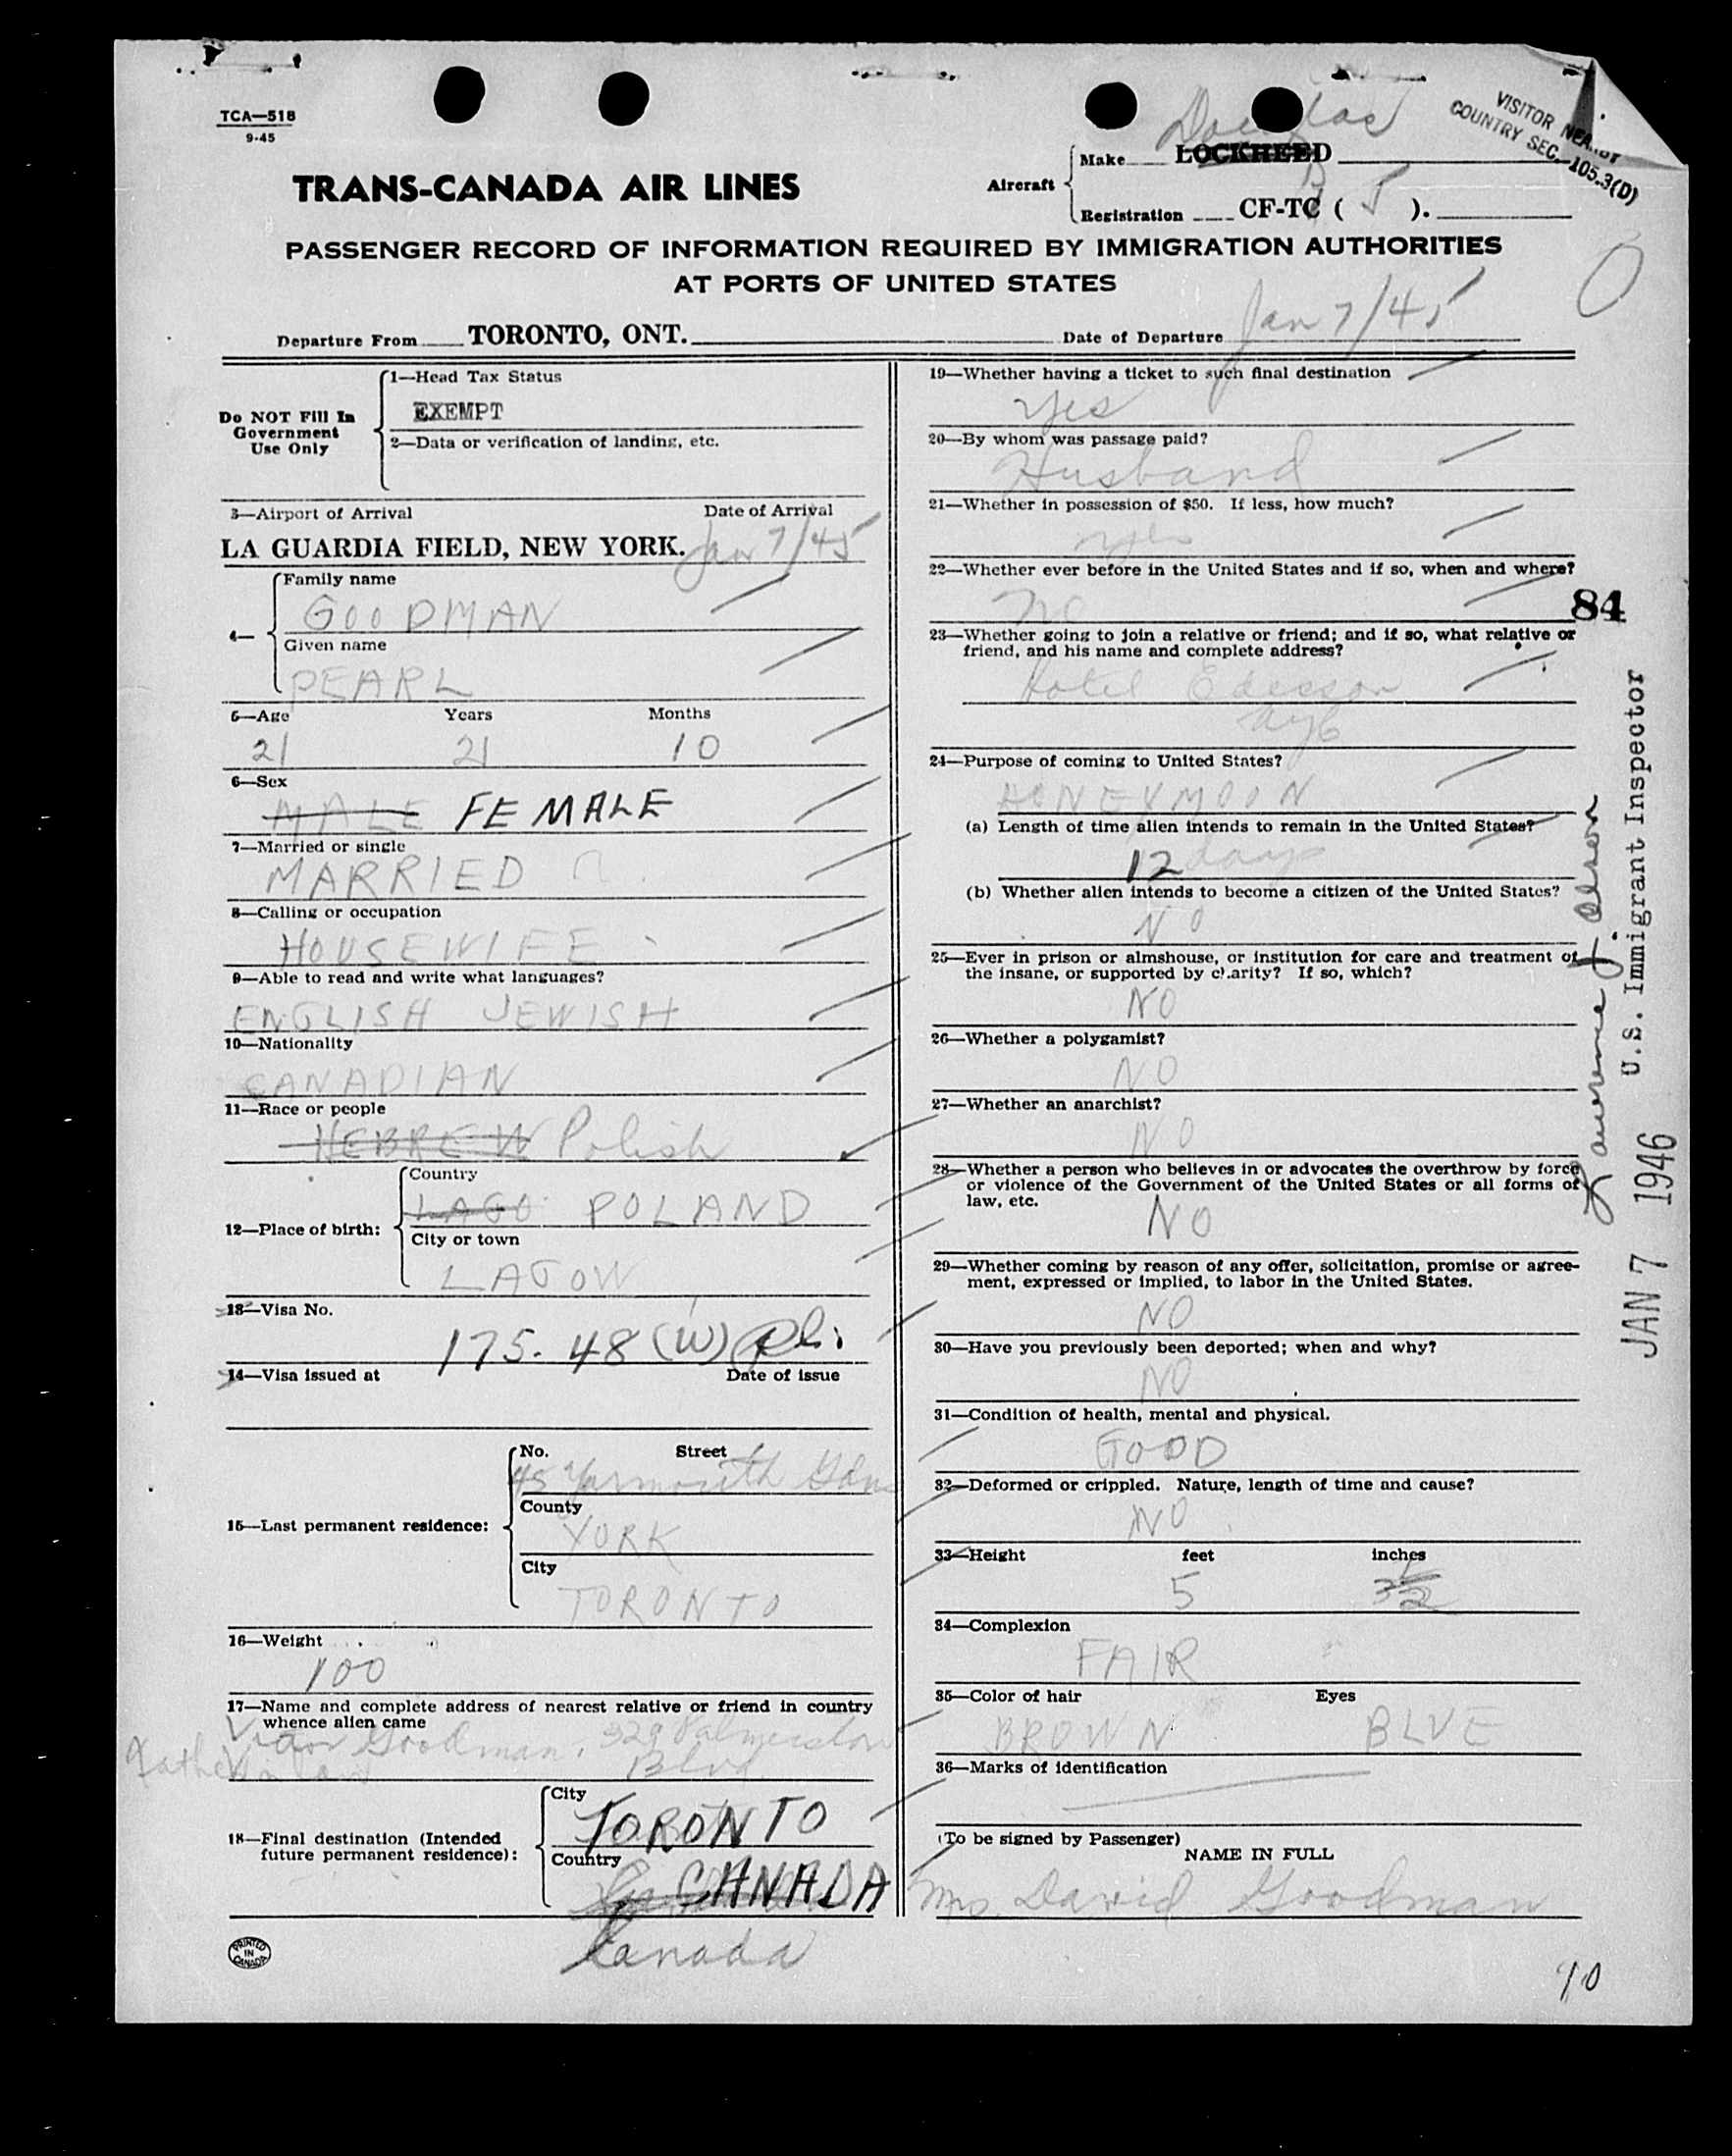 TCA—518
9-45
VISITOR NEARBY
COUNTRY SEC.-105.3(D)
TRANS-CANADA AIR LINES
Aircraft
Make LOCKHEED Douglas
Registration CF-TC ( J ).
PASSENGER RECORD OF INFORMATION REQUIRED BY IMMIGRATION AUTHORITIES
AT PORTS OF UNITED STATES
Departure From TORONTO, ONT. Date of Departure Jan 7/45
Do NOT Fill In
Government
Use Only
1—Head Tax Status
EXEMPT
2—Data or verification of landing, etc.
3—Airport of Arrival Date of Arrival
LA GUARDIA FIELD, NEW YORK. Jan 7/45
4—
Family name
GOODMAN
Given name
PEARL
5—Age Years Months
21 21 10
6—Sex
MALE FEMALE
7—Married or single
MARRIED
8—Calling or occupation
HOUSEWIFE
9—Able to read and write what languages?
ENGLISH JEWISH
10—Nationality
CANADIAN
11—Race or people
HEBREW Polish
12—Place of birth:
Country
LAGO POLAND
City or town
LAGOW
13—Visa No.
175.48 (W)
14—Visa issued at Date of issue
15—Last permanent residence:
No. Street
45 Yarmouth Gdns
County
YORK
City
TORONTO
16—Weight
100
17—Name and complete address of nearest relative or friend in country
whence alien came
Victor Goodman, 329 Palmerston
Father in law Blvd.
18—Final destination (Intended
future permanent residence):
City
TORONTO
Country
CANADA
Canada
PRINTED
IN
CANADA
19—Whether having a ticket to such final destination
Yes
20—By whom was passage paid?
Husband
21—Whether in possession of $50. If less, how much?
yes
22—Whether ever before in the United States and if so, when and where?
No
23—Whether going to join a relative or friend; and if so, what relative or
friend, and his name and complete address?
Hotel Edisson
NYC
24—Purpose of coming to United States?
HONEYMOON
(a) Length of time alien intends to remain in the United States?
12 days
(b) Whether alien intends to become a citizen of the United States?
NO
25—Ever in prison or almshouse, or institution for care and treatment of
the insane, or supported by charity? If so, which?
NO
26—Whether a polygamist?
NO
27—Whether an anarchist?
NO
28—Whether a person who believes in or advocates the overthrow by force
or violence of the Government of the United States or all forms of
law, etc.
NO
29—Whether coming by reason of any offer, solicitation, promise or agree-
ment, expressed or implied, to labor in the United States.
NO
30—Have you previously been deported; when and why?
NO
31—Condition of health, mental and physical.
GOOD
32—Deformed or crippled. Nature, length of time and cause?
NO
33—Height feet inches
5
34—Complexion
FAIR
35—Color of hair Eyes
BROWN BLUE
36—Marks of identification
(To be signed by Passenger)
NAME IN FULL
Mrs. David Goodman
84
Lawrence J. Olson
U.S. Immigrant Inspector
JAN 7 1946
10